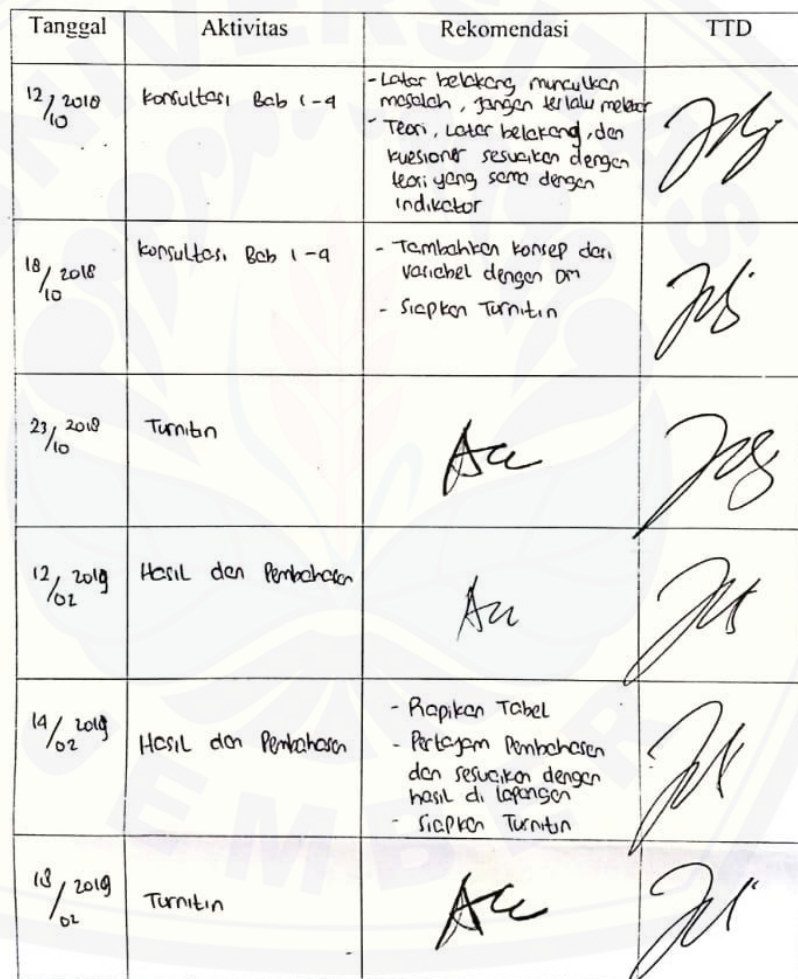 UNIVERSITAS
JEMBER
Tanggal Aktivitas Rekomendasi TTD
12/10 2018 Konsultasi Bab 1-4
- Latar belakang munculkan
masalah, jangan terlalu melebar
- Teori, Latar belakang, dan
kuesioner sesuaikan dengan
teori yang sama dengan
indikator
18/10 2018 Konsultasi Bab 1-4
- Tambahkan konsep dari
variabel dengan DM
- Siapkan Turnitin
23/10 2018 Turnitin Acc
12/02 2019 Hasil dan Pembahasan Acc
14/02 2019 Hasil dan Pembahasan
- Rapikan Tabel
- Pertajam Pembahasan
dan sesuaikan dengan
hasil di lapangan
- Siapkan Turnitin
18/02 2019 Turnitin Acc